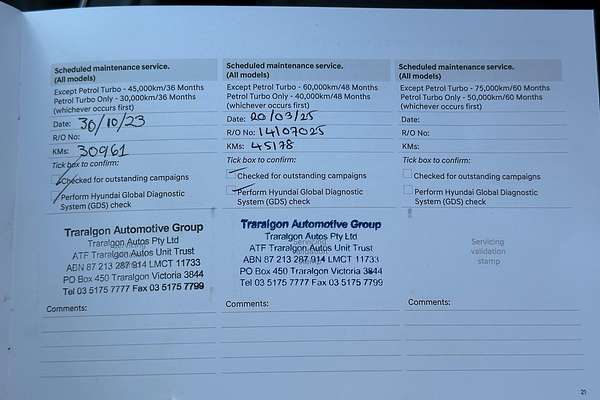 Scheduled maintenance service.
(All models)
Except Petrol Turbo - 45,000km/36 Months
Petrol Turbo Only - 30,000km/36 Months
(whichever occurs first)
Date: 30/10/23
R/O No:
KMs: 30961
Tick box to confirm:
Checked for outstanding campaigns
Perform Hyundai Global Diagnostic
System (GDS) check
Traralgon Automotive Group
Traralgon Autos Pty Ltd
ATF Traralgon Autos Unit Trust
ABN 87 213 287 914 LMCT 11733
PO Box 450 Traralgon Victoria 3844
Tel 03 5175 7777 Fax 03 5175 7799
Comments:
Scheduled maintenance service.
(All models)
Except Petrol Turbo - 60,000km/48 Months
Petrol Turbo Only - 40,000km/48 Months
(whichever occurs first)
Date: 20/03/25
R/O No: 14107025
KMs: 45178
Tick box to confirm:
Checked for outstanding campaigns
Perform Hyundai Global Diagnostic
System (GDS) check
Traralgon Automotive Group
Traralgon Autos Pty Ltd
ATF Traralgon Autos Unit Trust
ABN 87 213 287 914 LMCT 11733
PO Box 450 Traralgon Victoria 3844
Tel 03 5175 7777 Fax 03 5175 7799
Comments:
Scheduled maintenance service.
(All models)
Except Petrol Turbo - 75,000km/60 Months
Petrol Turbo Only - 50,000km/60 Months
(whichever occurs first)
Date:
R/O No:
KMs:
Tick box to confirm:
Checked for outstanding campaigns
Perform Hyundai Global Diagnostic
System (GDS) check
Servicing
validation
stamp
Comments:
21